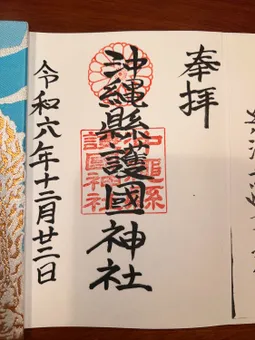 奉拝
沖縄縣護國神社
沖縄縣護國神社
令和六年十二月廿二日